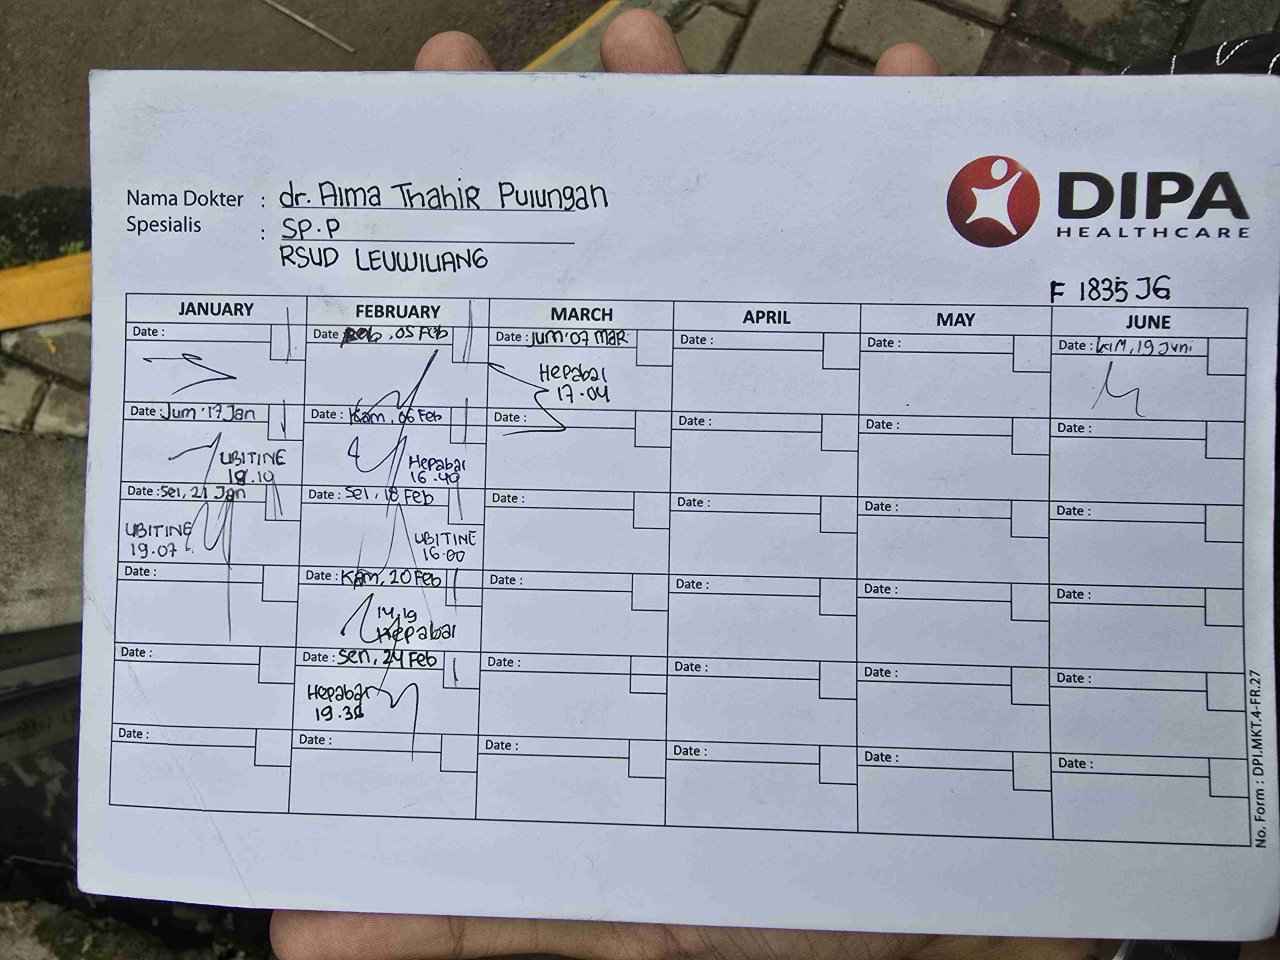 Nama Dokter : dr. Alma Thahir Pulungan
Spesialis : SP.P
RSUD LEUWILIANG
DIPA
HEALTHCARE
F 1835 JG
JANUARY FEBRUARY MARCH APRIL MAY JUNE
Date : Date : 05 Feb Date : Jum'07 MAR Date : Date : Date : KAM, 19 Juni
Hepabal
17.04
Date : Jum'17 Jan Date : Kam, 06 Feb Date : Date : Date : Date :
UBITINE Hepabal
18.10 16.40
Date : Sel, 21 Jan Date : Sel, 18 Feb Date : Date : Date : Date :
UBITINE UBITINE
19.07 16.00
Date : Date : Kam, 20 Feb Date : Date : Date : Date :
14.19
Hepabal
Date : Date : Sen, 24 Feb Date : Date : Date : Date :
Hepabal
Date : Date : Date : Date : Date : Date :
No. Form : DPI.MKT.4-FR.27